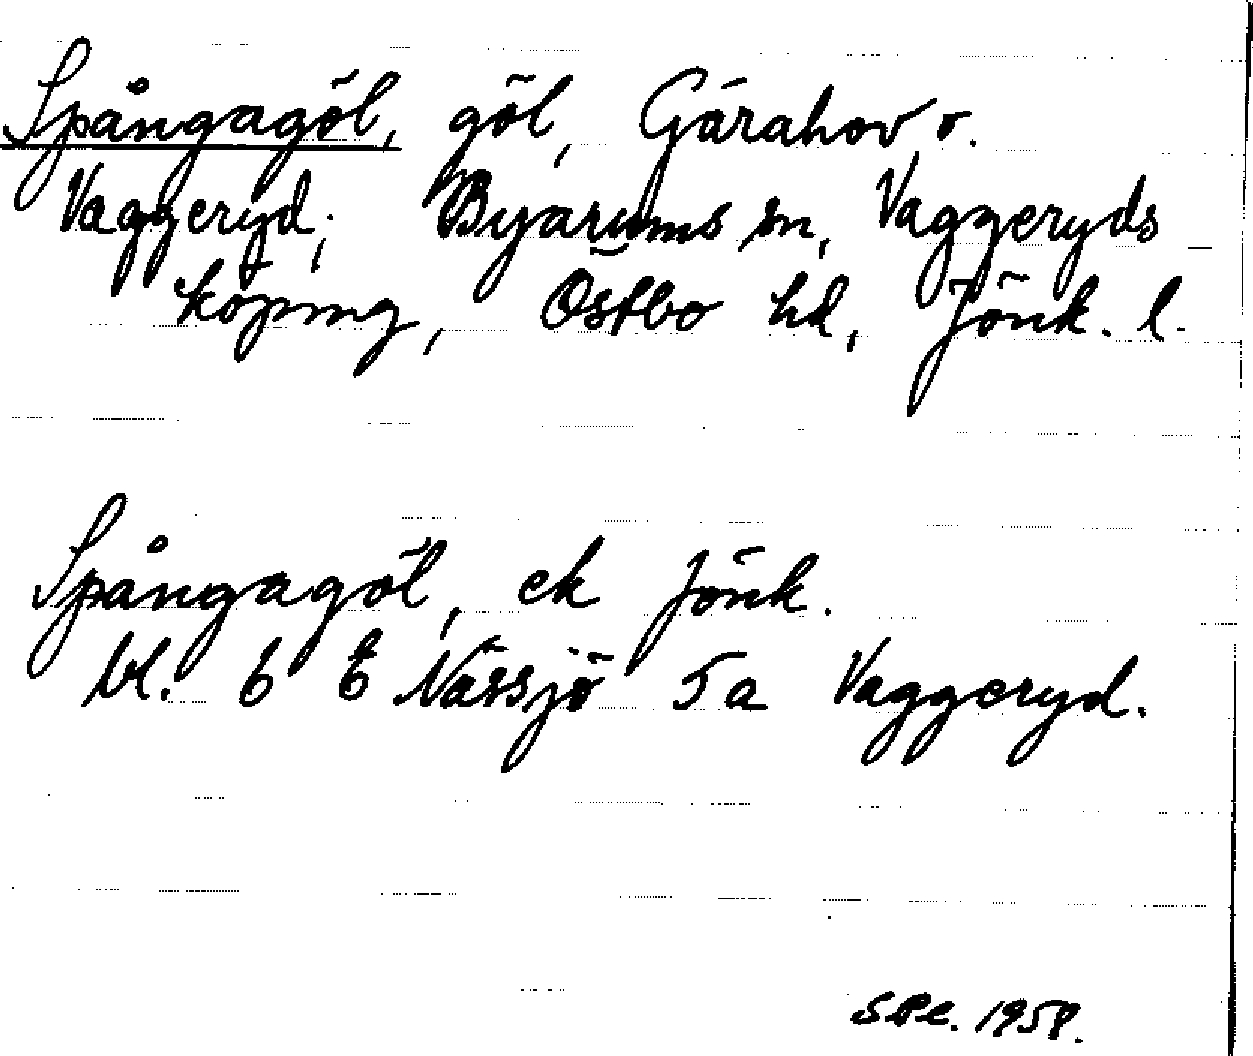 Spångagöl, göl, Gårahov o.
Vaggeryd; Byarums sn, Vaggeryds
köping, Östbo hd, Jönk. l.
Spångagöl, ek Jönk.
bl. 6 E Nässjö 5a Vaggeryd.
1958.